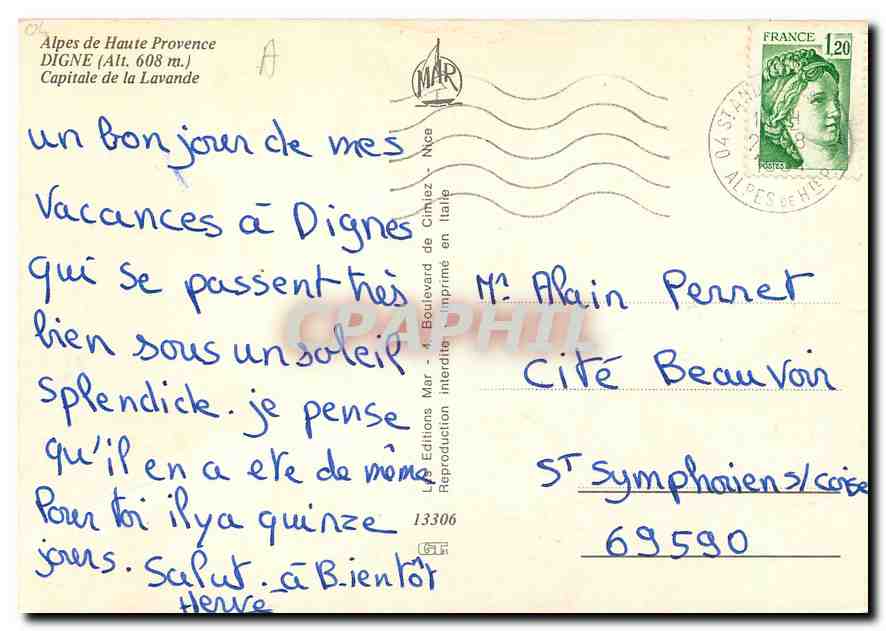 04
Alpes de Haute Provence
DIGNE (Alt. 608 m.)
Capitale de la Lavande
A
MAR
FRANCE 1,20
POSTES
04 ST AN
ALPES DE HTE P
un bonjour de mes
vacances à Dignes
qui se passent très
bien sous un soleil
splendide. je pense
qu'il en a ete de même
Pour toi il y a quinze
jours. Salut. à Bientôt
Hervé
Les Editions Mar - 4, Boulevard de Cimiez - Nice
Reproduction interdite - Imprimé en Italie
13306
Mr Alain Perret
Cité Beauvoir
ST Symphorien s/ coise
69590
CPAPHIL